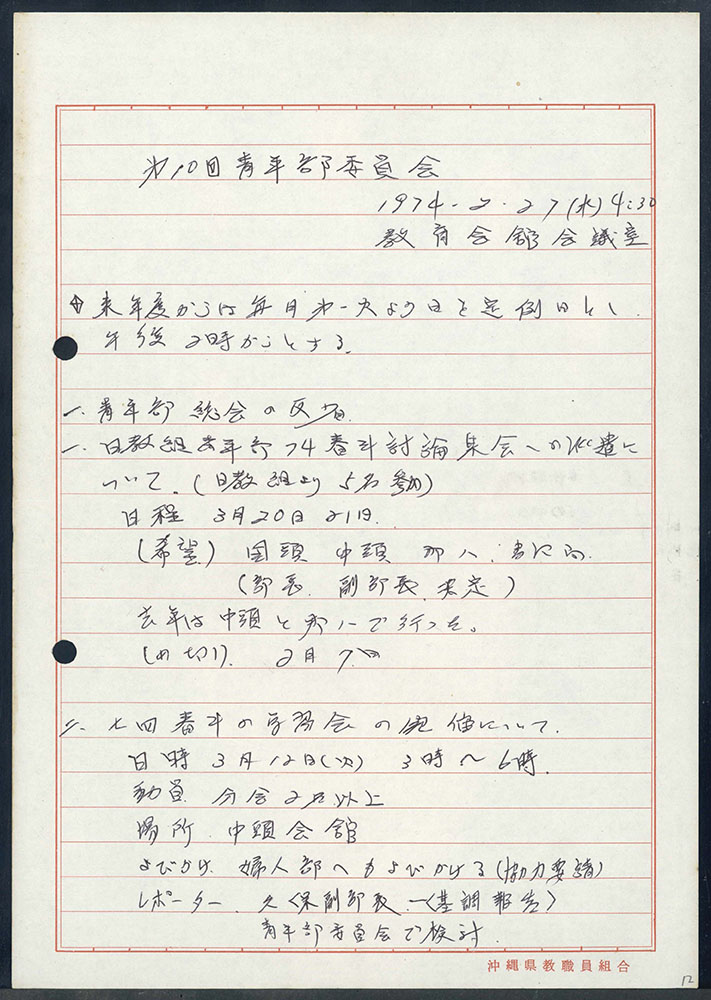 第10回青年部委員会
1974-2-27(水)4:30
教育会館会議室
来年度からは毎月第一火よう日を定例日とし
午後2時からとする。
一、青年部総会の反省
一、日教組青年部74春斗討論集会への派遣に
ついて。(日教組より5名参加)
日程 3月20日21日
(希望)国頭 中頭 那八、
(部長、副部長、決定)
去年は中頭と那八で行った。
(〆切り) 2月7日
二、七四春斗の学習会の開催について
日時 3月12日(火) 3時〜6時
動員 分会2名以上
場所 中頭会館
よびかけ 婦人部へもよびかける(協力要請)
レポーター 久保副部長―〈基調報告〉
青年部委員会で検討
沖縄県教職員組合
12